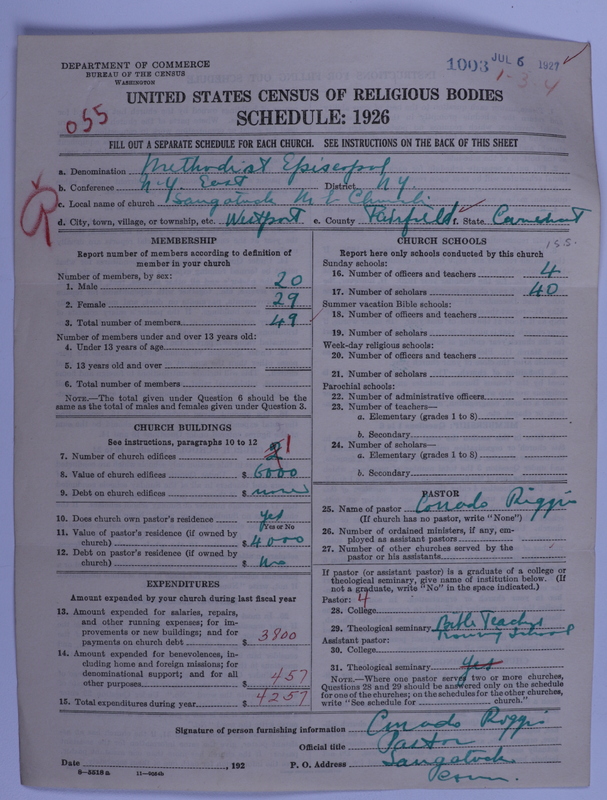 DEPARTMENT OF COMMERCE
BUREAU OF THE CENSUS
WASHINGTON
1003 JUL 6 1927
1-3-4
055
UNITED STATES CENSUS OF RELIGIOUS BODIES
SCHEDULE: 1926
FILL OUT A SEPARATE SCHEDULE FOR EACH CHURCH. SEE INSTRUCTIONS ON THE BACK OF THIS SHEET
a. Denomination Methodist Episcopal
b. Conference N.Y. East District N.Y.
c. Local name of church Saugatuck M E Church
d. City, town, village, or township, etc. Westport e. County Fairfield f. State Connecticut
MEMBERSHIP
Report number of members according to definition of
member in your church
Number of members, by sex:
1. Male 20
2. Female 29
3. Total number of members 49
Number of members under and over 13 years old:
4. Under 13 years of age
5. 13 years old and over
6. Total number of members
NOTE.—The total given under Question 6 should be the
same as the total of males and females given under Question 3.
CHURCH BUILDINGS
See instructions, paragraphs 10 to 12
7. Number of church edifices 2 1
8. Value of church edifices $ 6000
9. Debt on church edifices $ none
10. Does church own pastor's residence yes
Yes or No
11. Value of pastor's residence (if owned by
church) $ 4000
12. Debt on pastor's residence (if owned by
church) $ No
EXPENDITURES
Amount expended by your church during last fiscal year
13. Amount expended for salaries, repairs,
and other running expenses; for im-
provements or new buildings; and for
payments on church debt $ 3800
14. Amount expended for benevolences, in-
cluding home and foreign missions; for
denominational support; and for all
other purposes $ 457
15. Total expenditures during year $ 4257
CHURCH SCHOOLS
Report here only schools conducted by this church
Sunday schools:
16. Number of officers and teachers 4
17. Number of scholars 40
Summer vacation Bible schools:
18. Number of officers and teachers
19. Number of scholars
Week-day religious schools:
20. Number of officers and teachers
21. Number of scholars
Parochial schools:
22. Number of administrative officers
23. Number of teachers—
a. Elementary (grades 1 to 8)
b. Secondary
24. Number of scholars—
a. Elementary (grades 1 to 8)
b. Secondary
PASTOR
25. Name of pastor Corrado Riggio
(If church has no pastor, write "None")
26. Number of ordained ministers, if any, em-
ployed as assistant pastors
27. Number of other churches served by the
pastor or his assistants
If pastor (or assistant pastor) is a graduate of a college or
theological seminary, give name of institution below. (If
not a graduate, write "No" in the space indicated.)
Pastor: 4
28. College
29. Theological seminary Bible Teachers
Training School
Assistant pastor:
30. College
31. Theological seminary yes
NOTE.—Where one pastor served two or more churches,
Questions 28 and 29 should be answered only on the schedule
for one of the churches; on the schedules for the other churches,
write "See schedule for church."
Signature of person furnishing information Corrado Riggio
Official title Pastor
Date , 192 P. O. Address Saugatuck
Conn.
8-5518 a 11-9054b